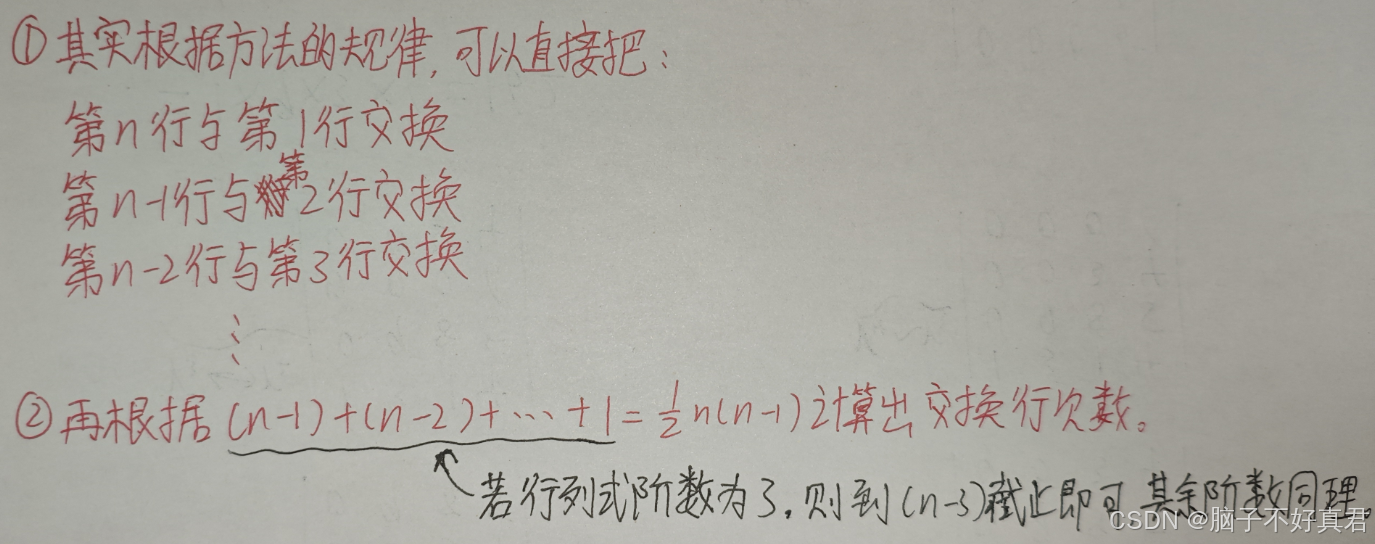 ①其实根据方法的规律,可以直接把:
第n行与第1行交换
第n-1行与第2行交换
第n-2行与第3行交换
⋮
②再根据(n-1)+(n-2)+⋯+1=½n(n-1)计算出交换行次数。
若行列式阶数为3,则到(n-3)截止即可 其余阶数同理。
CSDN @脑子不好真君